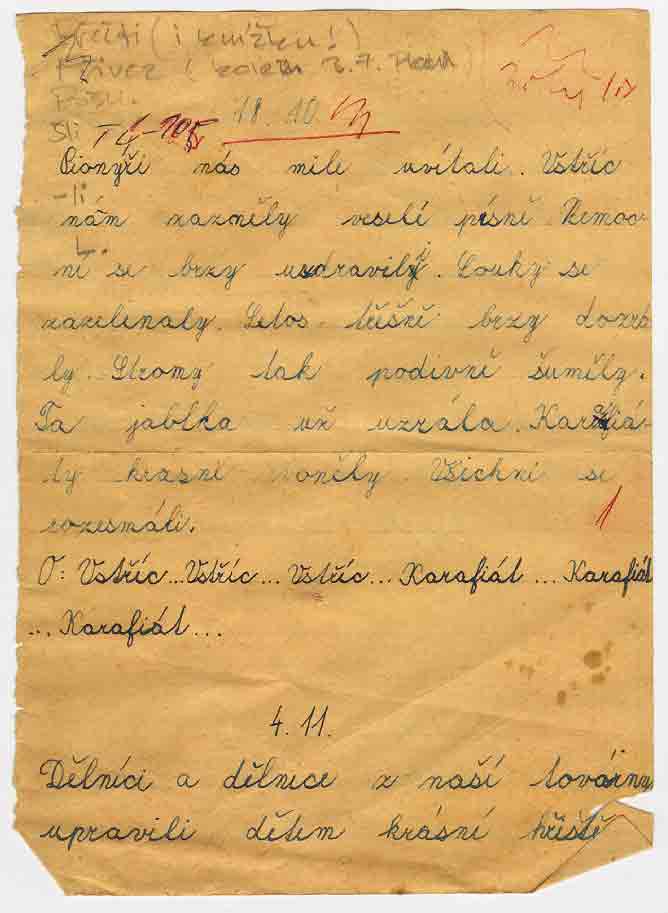 (i knížku!)
18. 10.
Pionýři nás mile uvítali. Vstříc
nám zazněly veselé písně. Nemoc-
ní se brzy uzdravili. Louky se
zazelenaly. Letos třešně brzy dozrá
ly. Stromy tak podivně šuměly.
Ta jablka už uzrála. Karafiá-
ty krásně voněly. Všichni se
rozesmáli.
1
O: Vstříc... Vstříc... Vstříc... Karafiát... Karafiát
... Karafiát...
4. 11.
Dělníci a dělnice z naší továrny
upravili dětem krásné hřiště